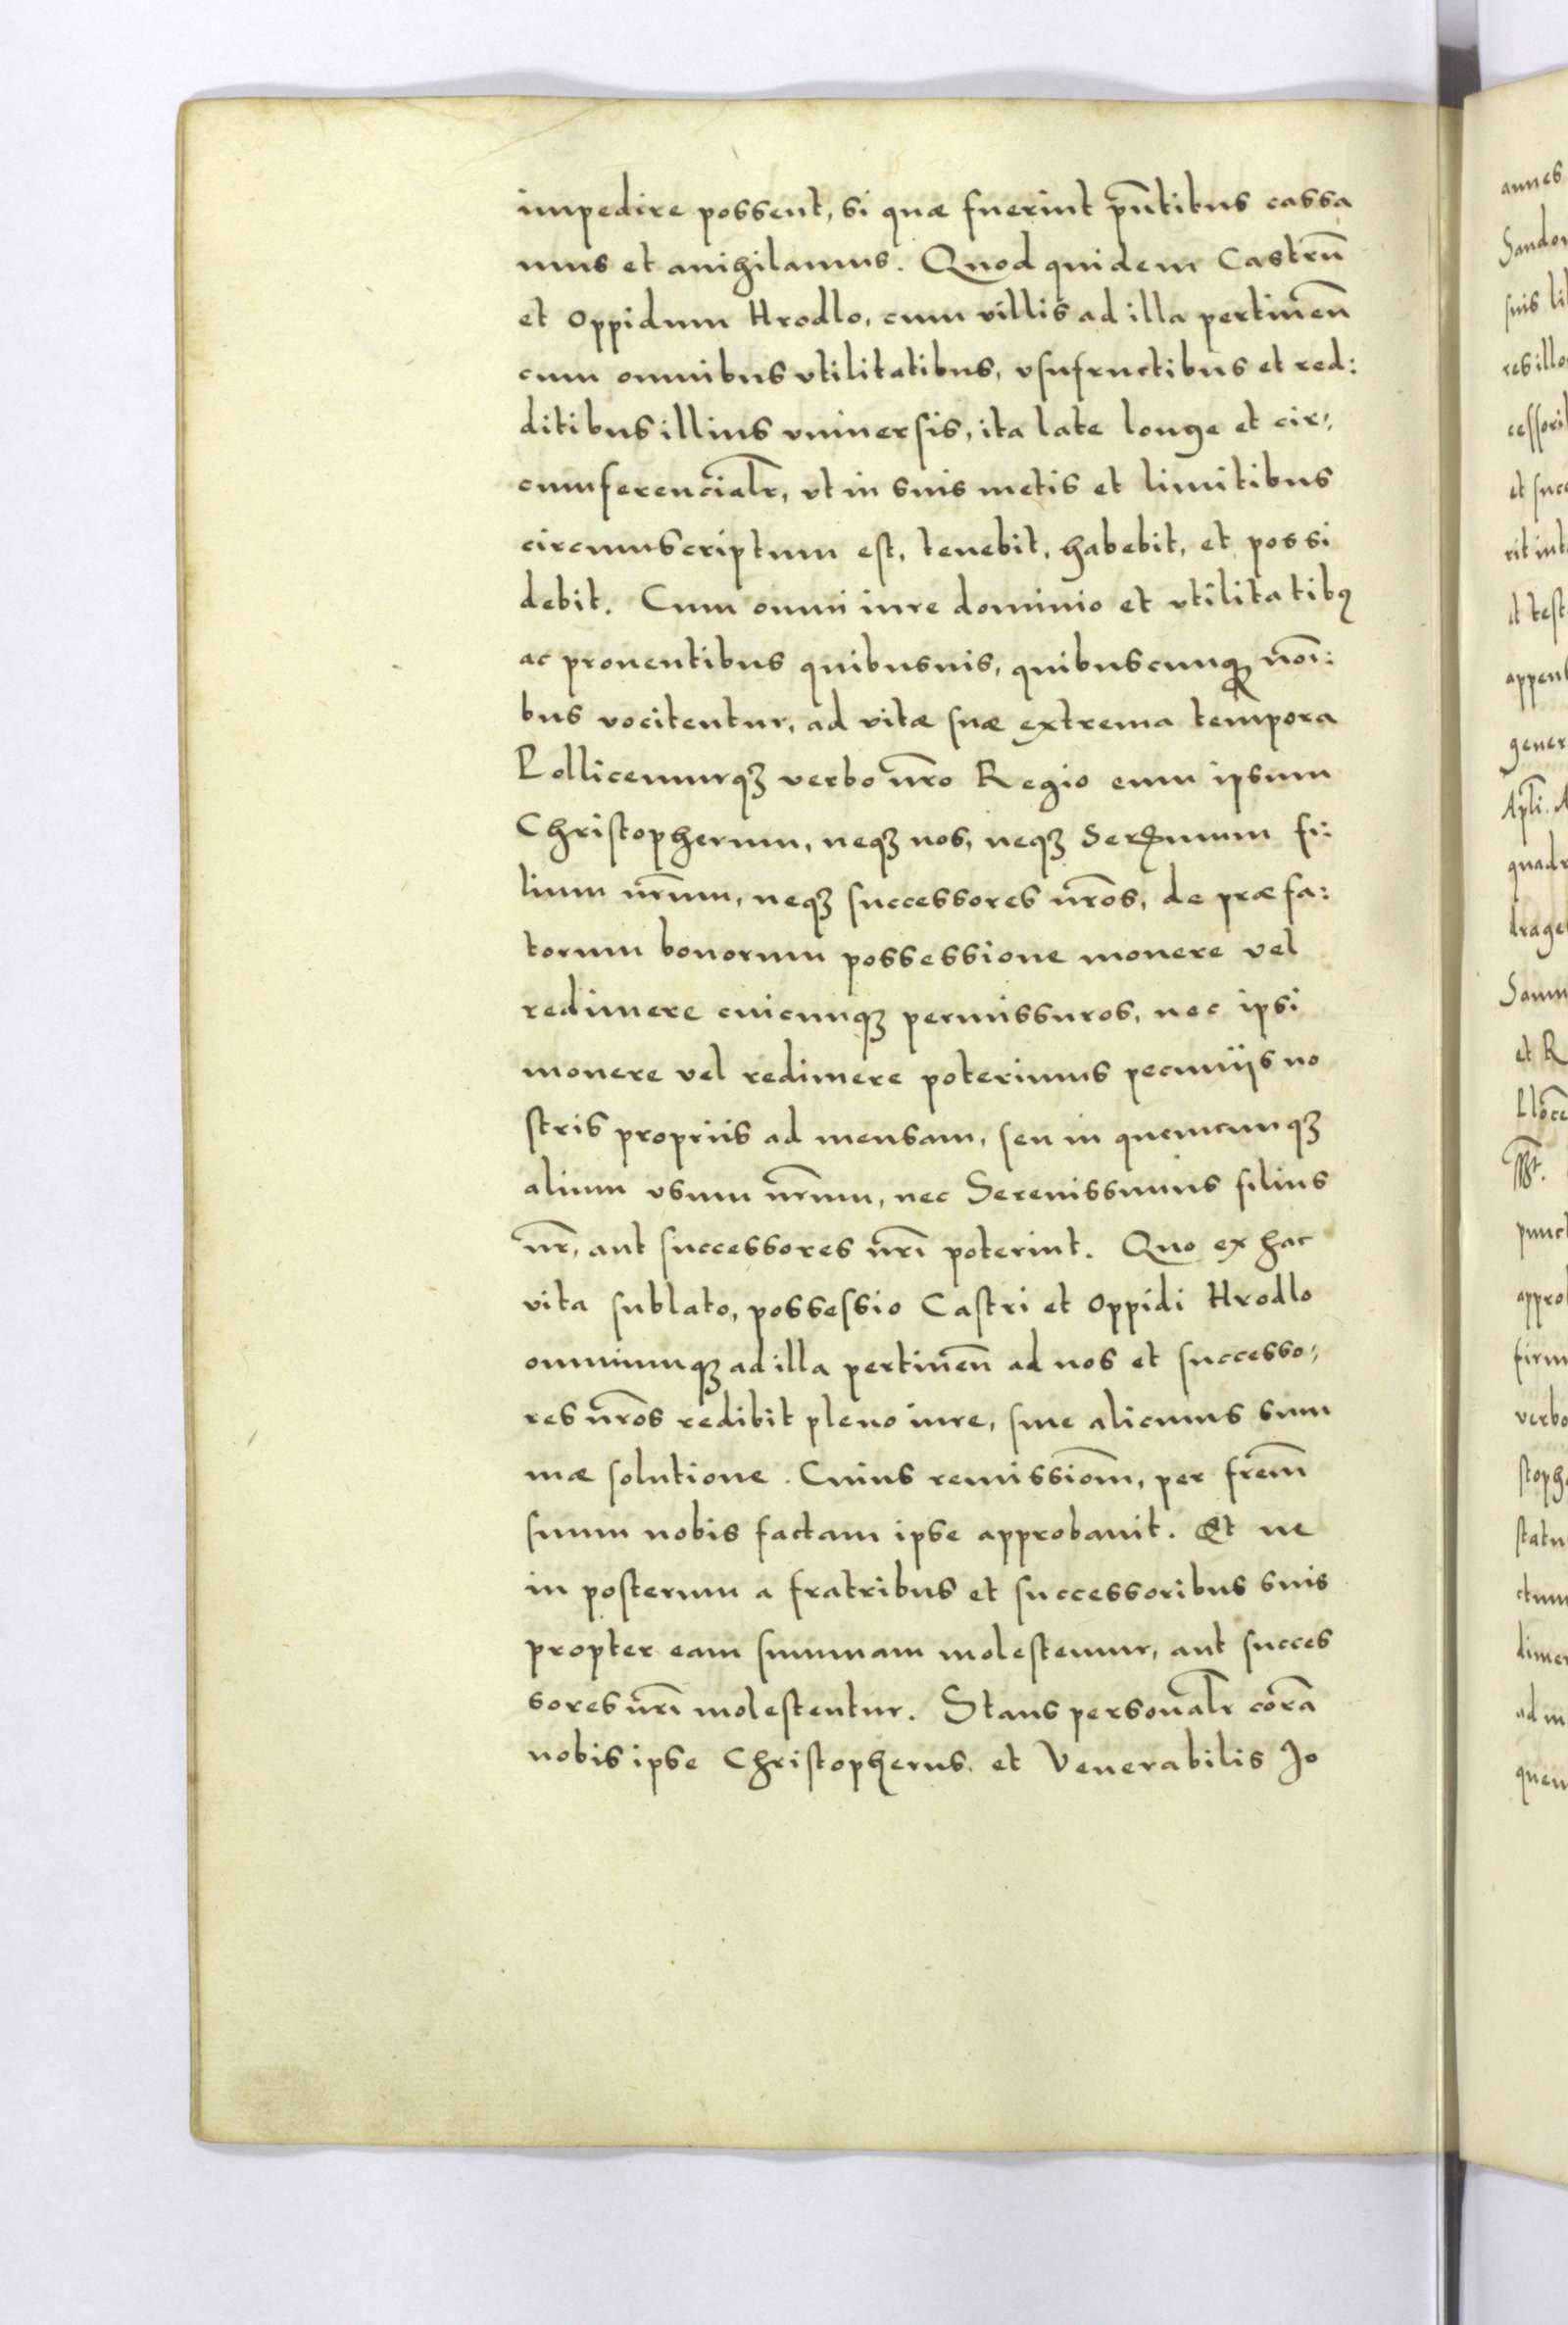 impedire possent, si quæ fuerint pn̄tibus cassa
mus et anihilamus. Quod quidem Castrū
et oppidum Hrodlo, cum villis ad illa pertineñ
cum omnibus vtilitatibus, vsufructibus et red:
ditibus illius vniuersis, ita late longe et cir:
cumferencialr̄, vt in suis metis et limitibus
circumscriptum est, tenebit, habebit, et possi
debit. Cum omni iure dominio et vtilitatibꝰ
ac prouentibus quibusuis, quibuscunqꝫ nōī:
bus vocitentur, ad vitæ suæ extrema tempora
Pollicemurqꝫ verbo nr̄o Regio eum ipsum
Christopherum, neqꝫ nos, neqꝫ Serᵐmum fi:
lium nr̄um, neqꝫ successores nr̄os, de præfa:
torum bonorum possessione mouere vel
redimere cuicunqꝫ permissuros, nec ipsi
mouere vel redimere poterimus pecuniis no
stris propriis ad mensam, seu in quemcunqꝫ
alium vsum nr̄um, nec Serenissimus filius
nr̄, aut successores nr̄i poterint. Quo ex hac
vita sublato, possessio Castri et oppidi Hrodlo
omniumqꝫ ad illa pertineñ ad nos et successo:
res nr̄os redibit pleno iure, sine alicuius sum
mæ solutione. Cuius remissiōm, per frēm
suum nobis factam ipse approbauit. Et ne
in posterum a fratribus et successoribus suis
propter eam summam molestemur, aut succes
sores nr̄i molestentur. Stans personalr̄ corā
nobis ipse Christopherus. et Venerabilis Jo